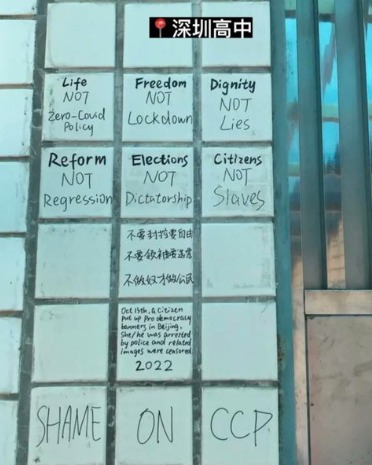 📍深圳高中
Life
NOT
Zero-Covid
Policy
Freedom
NOT
Lockdown
Dignity
NOT
Lies
Reform
NOT
Regression
Elections
NOT
Dictatorship
Citizens
NOT
Slaves
不要封控要自由
不要领袖要选票
不做奴才做公民
Oct 13th, a citizen
put up pro democracy
banners in Beijing,
She/he was arrested
by police and related
images were censored
2022
SHAME
ON
CCP